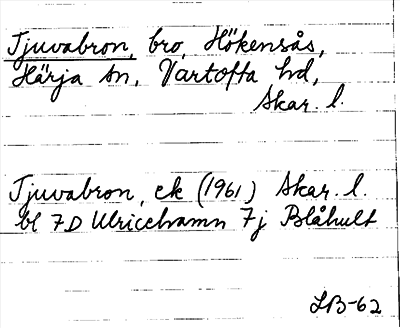 Tjuvabron, bro, Hökensås,
Härja sn, Vartofta hd,
Skar. l.
Tjuvabron, ek (1961) Skar. l.
bl 7D Ulricehamn 7j Blåhult
LB-62